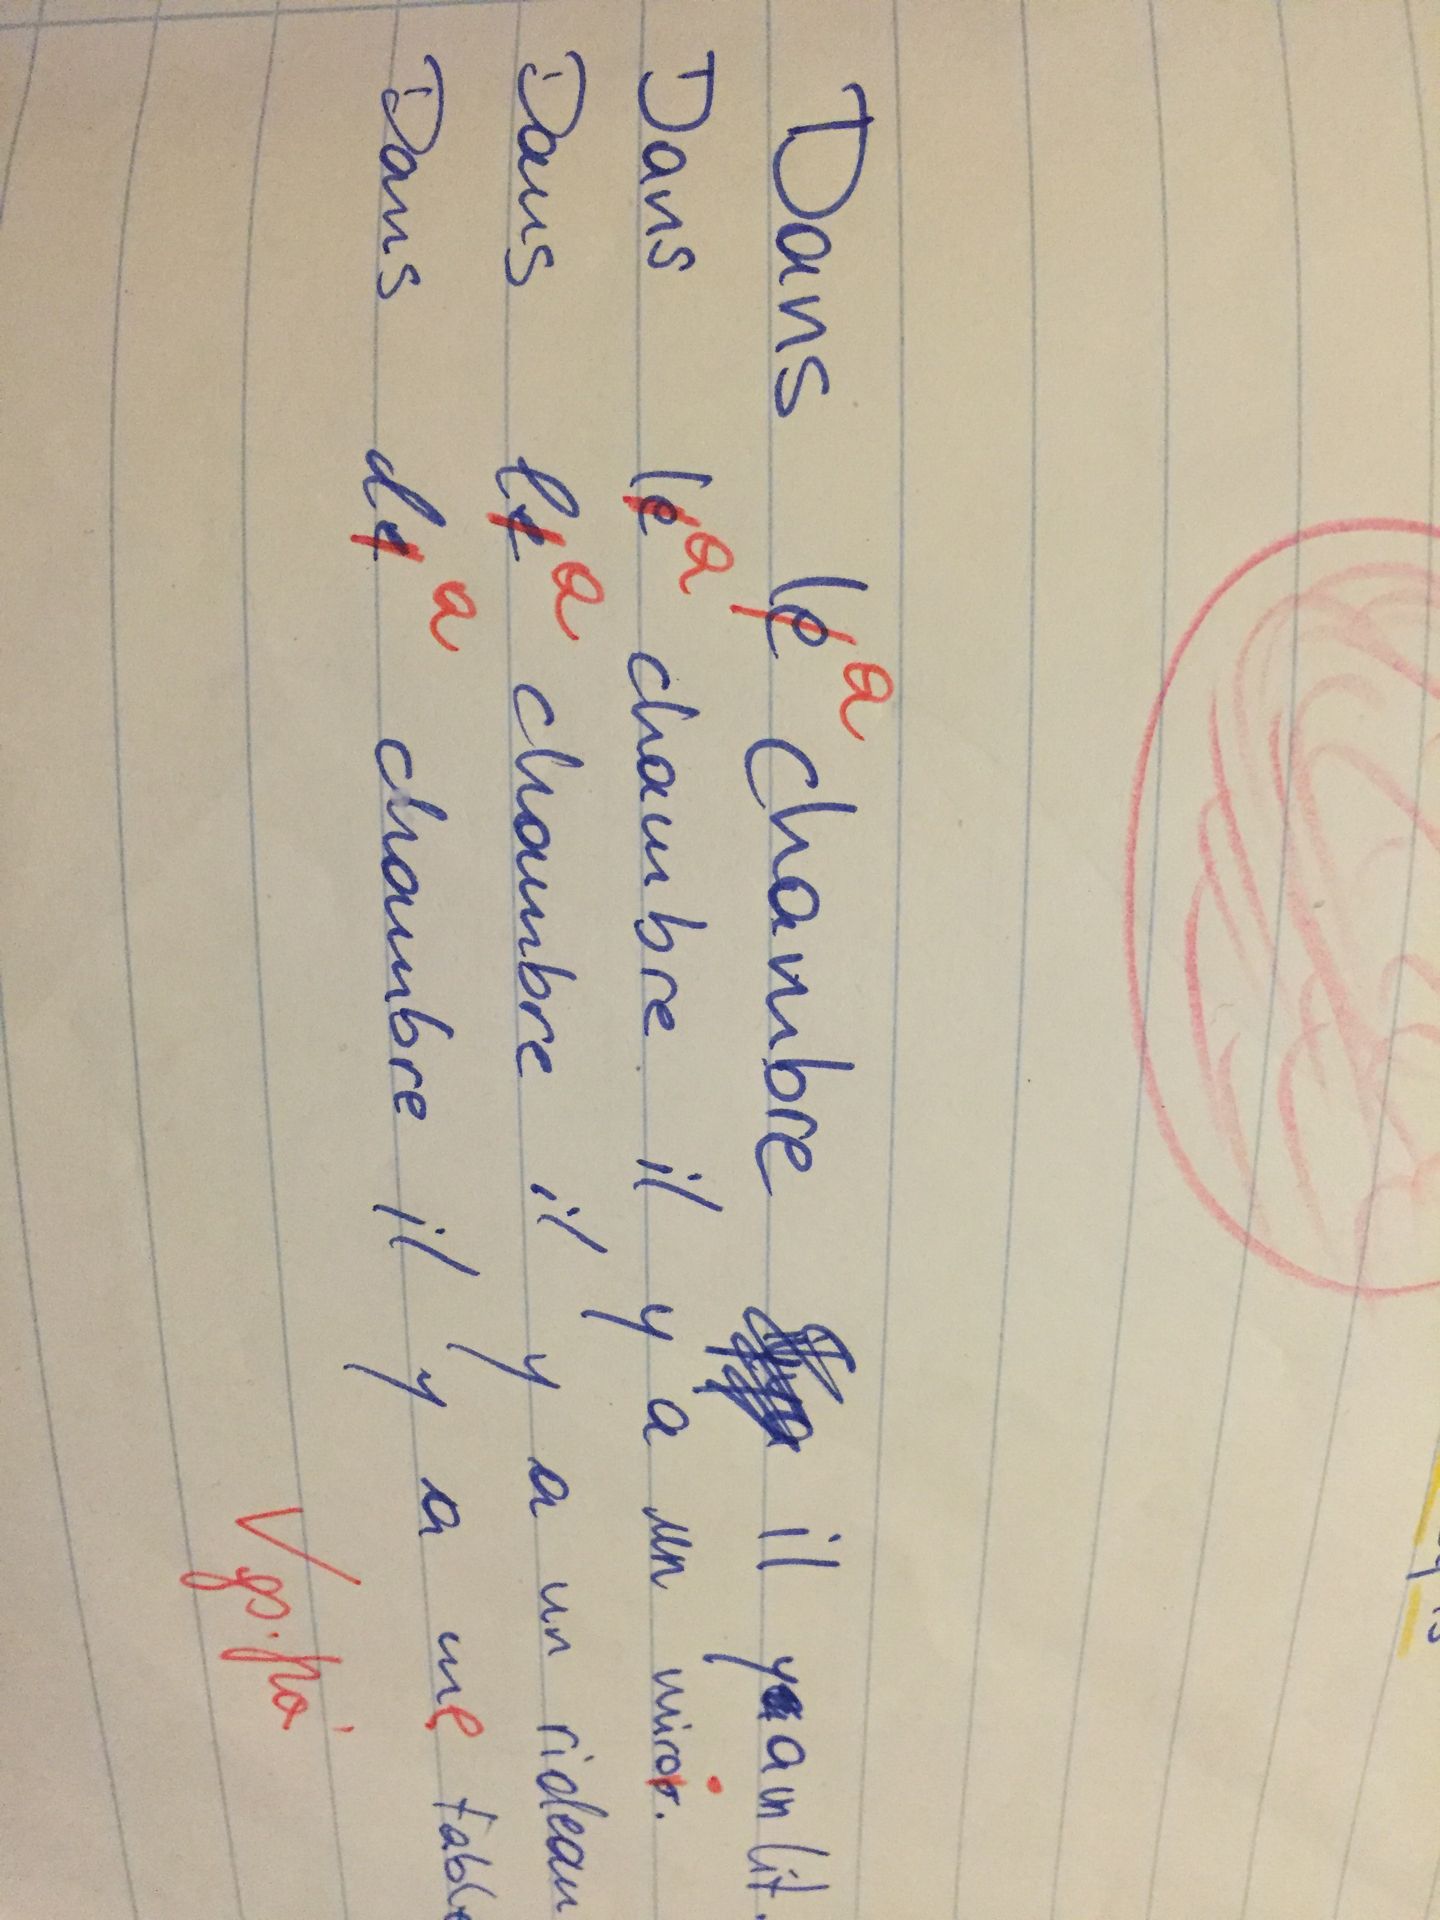 Dans le a chambre il y a un lit.
Dans le a chambre il y a un miroir.
Dans le a chambre il y a un rideau
Dans le a chambre il y a une table